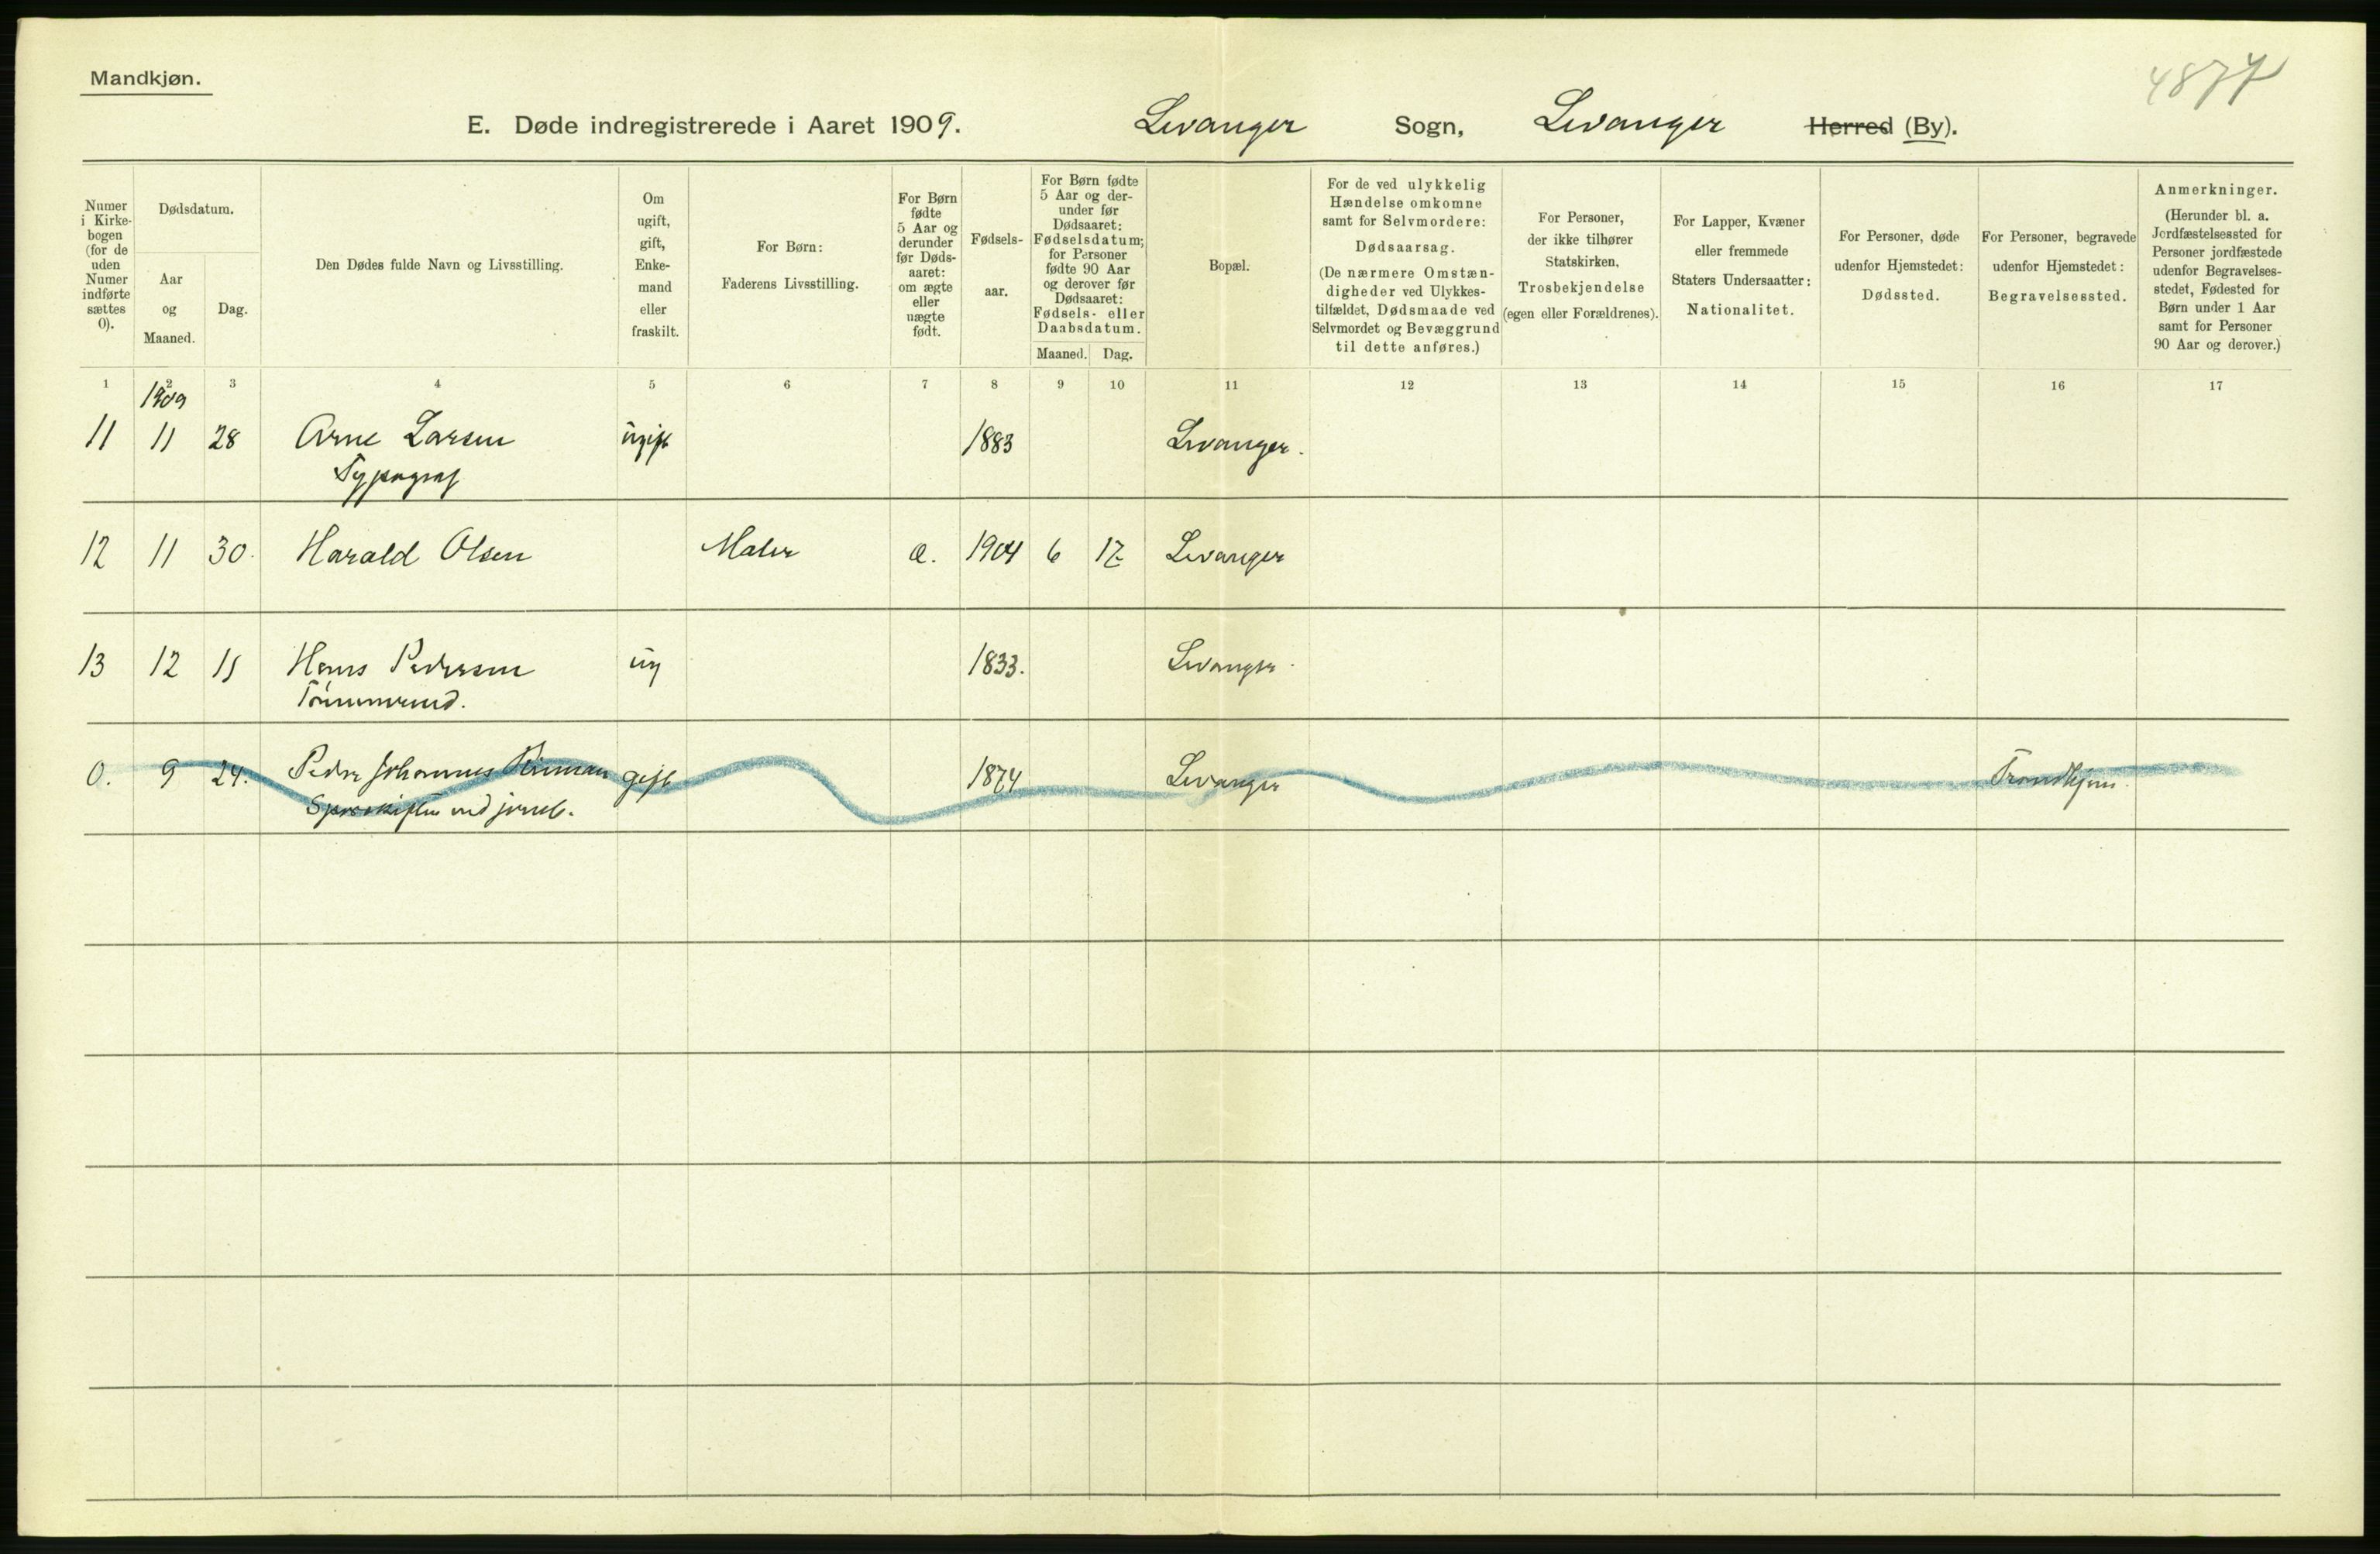 Mandkjøn.
4877
E. Døde indregistrerede i Aaret 1909. Levanger Sogn, Levanger Herred (By).
Numer i Kirke-bogen (for de uden Numer indførte sættes 0).
Dødsdatum.
Aar og Maaned.
Dag.
Den Dødes fulde Navn og Livsstilling.
Om ugift, gift, Enke-mand eller fraskilt.
For Børn: Faderens Livsstilling.
For Børn fødte 5 Aar og derunder før Døds-aaret: om ægte eller uægte født.
Fødsels-aar.
For Børn fødte 5 Aar og der-under før Dødsaaret: Fødselsdatum; for Personer fødte 90 Aar og derover før Dødsaaret: Fødsels- eller Daabsdatum.
Maaned. Dag.
Bopæl.
For de ved ulykkelig Hændelse omkomne samt for Selvmordere: Dødsaarsag. (De nærmere Omstæn-digheder ved Ulykkes-tilfældet, Dødsmaade ved Selvmordet og Bevæggrund til dette anføres.)
For Personer, der ikke tilhører Statskirken, Trosbekjendelse (egen eller Forældrenes).
For Lapper, Kvæner eller fremmede Staters Undersaatter: Nationalitet.
For Personer, døde udenfor Hjemstedet: Dødssted.
For Personer, begravede udenfor Hjemstedet: Begravelsessted.
Anmerkninger. (Herunder bl. a. Jordfæstelsessted for Personer jordfæstede udenfor Begravelses-stedet, Fødested for Børn under 1 Aar samt for Personer 90 Aar og derover.)
1 2 3 4 5 6 7 8 9 10 11 12 13 14 15 16 17
1909
11 11 28 Arne Larsen ugift 1883 Levanger.
Typograf
12 11 30. Harald Olsen Maler æ. 1904 6 12 Levanger
13 12 15 Hans Pedersen ug 1833. Levanger.
Tømmermd.
0. 9 24. Peder Johannes gift 1874 Levanger Trondhjem.
Sporskifter ved jernb.